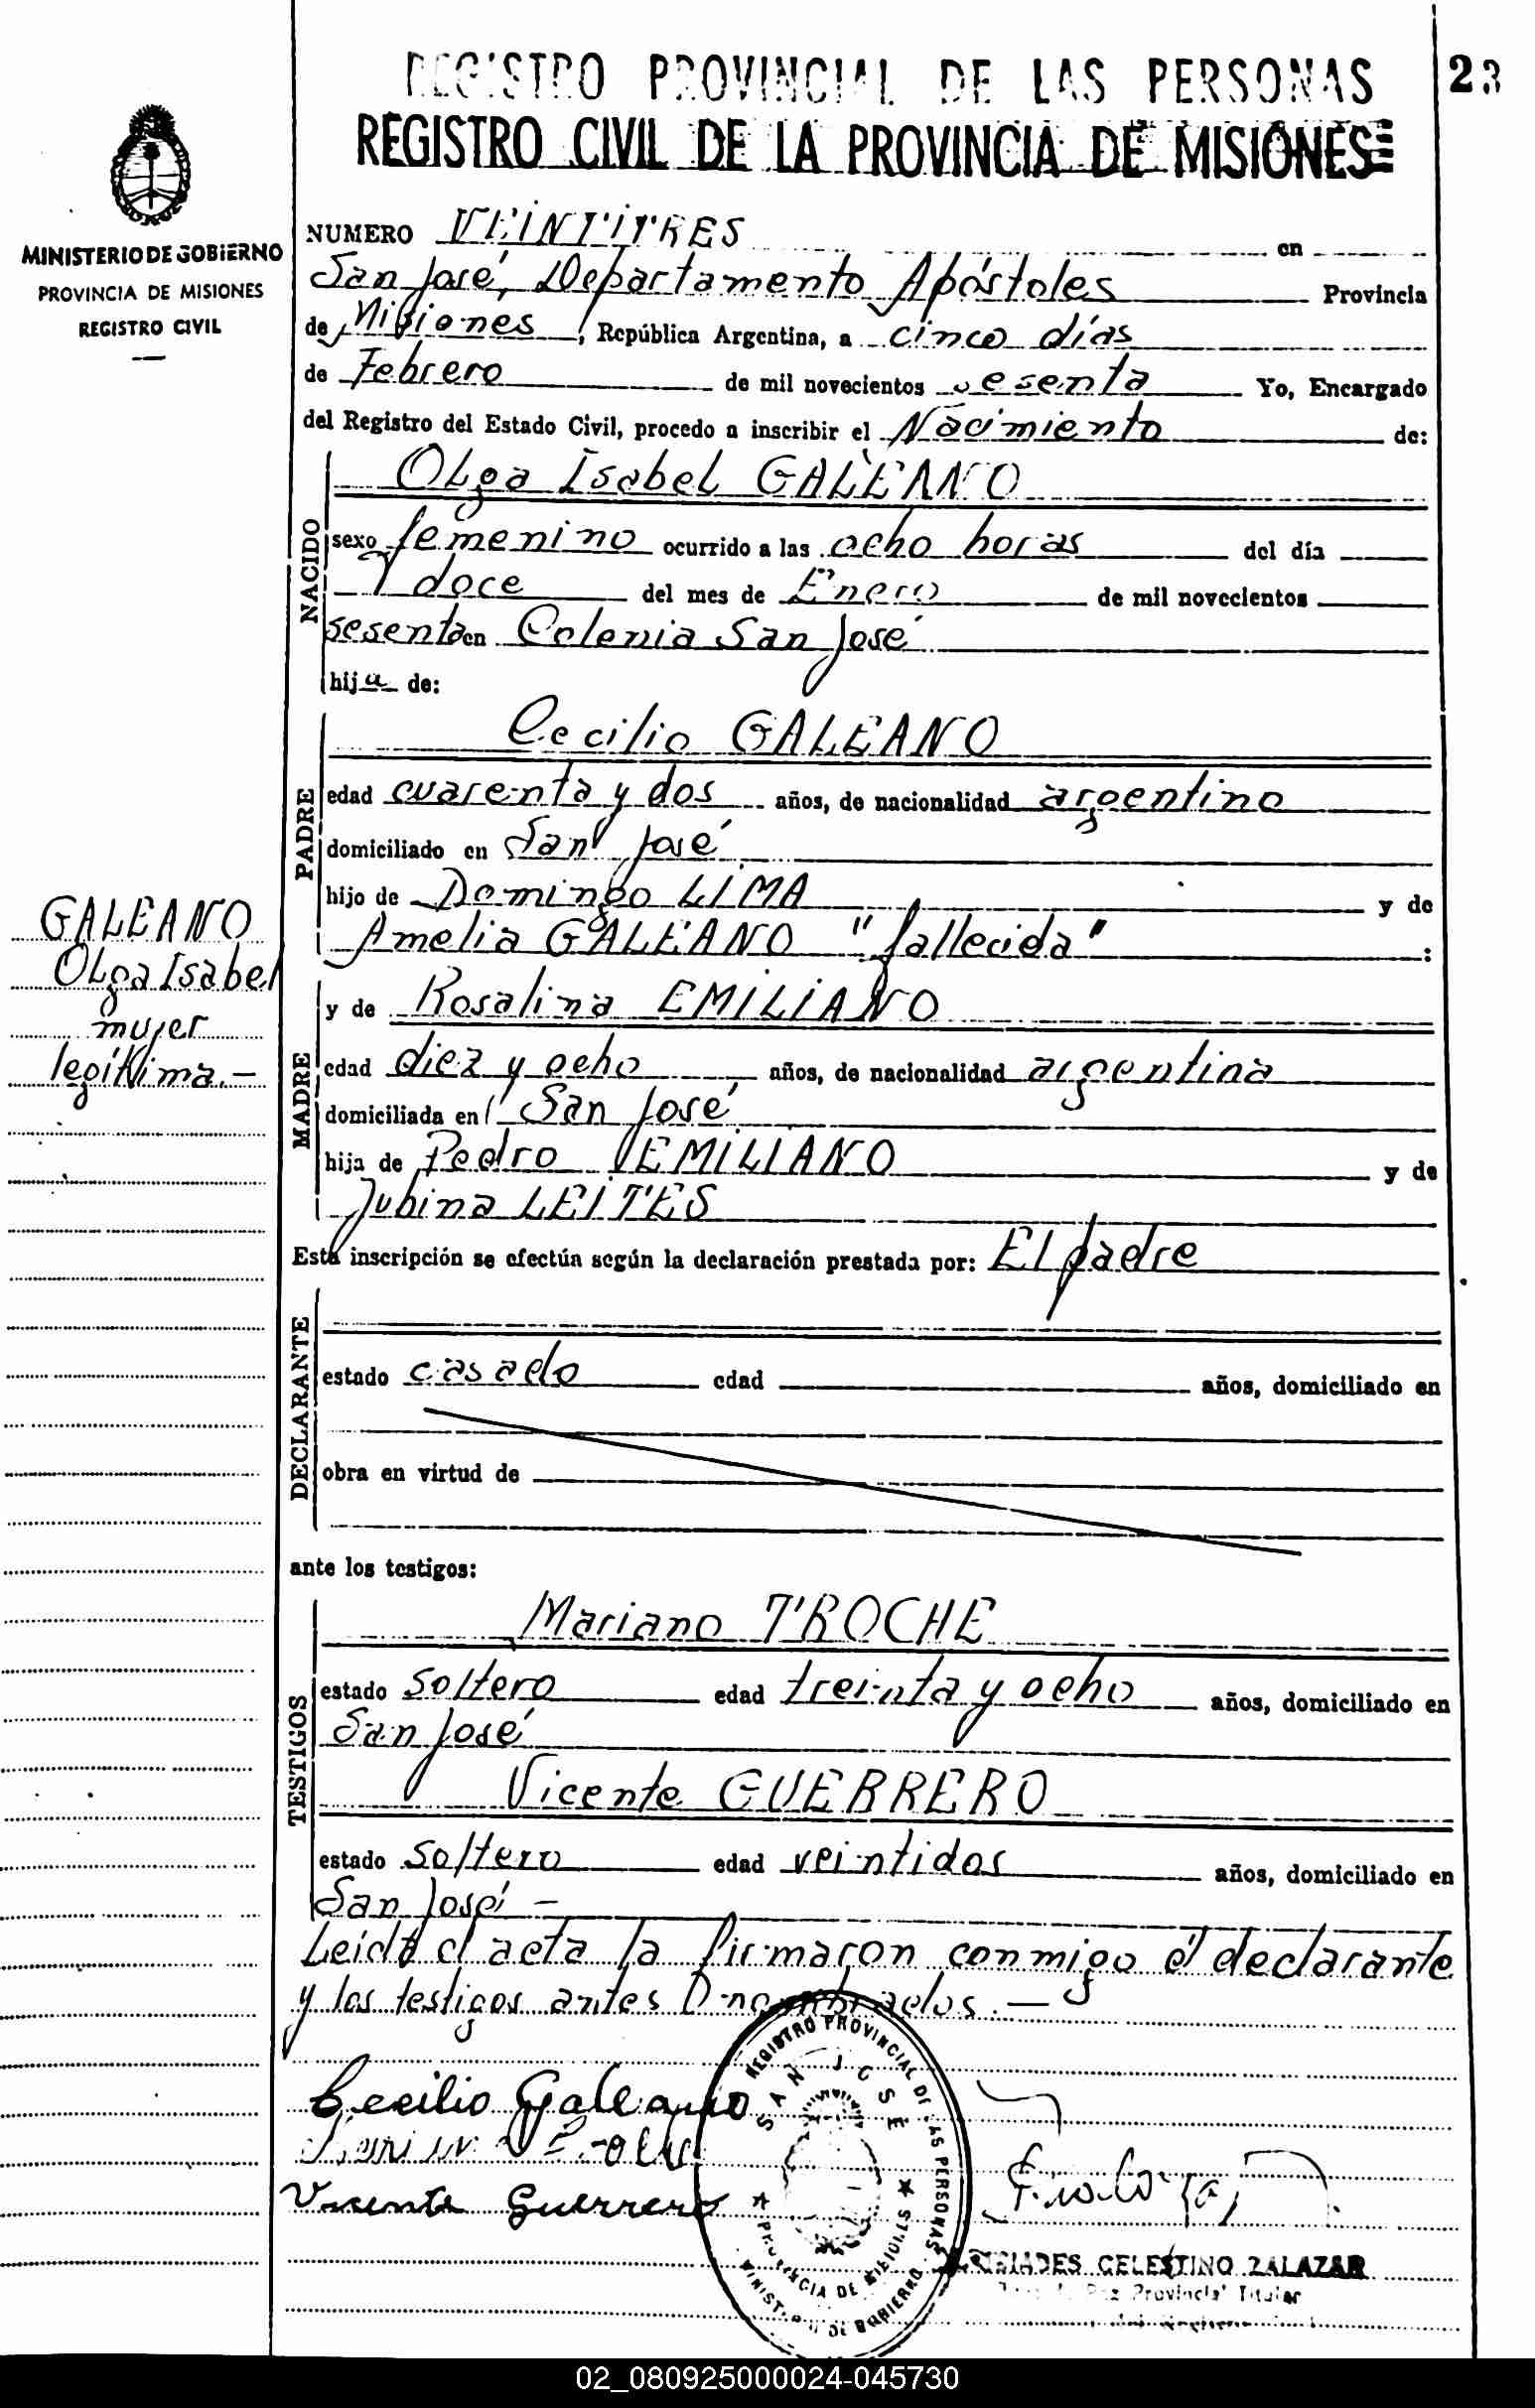 REGISTRO PROVINCIAL DE LAS PERSONAS
23
REGISTRO CIVIL DE LA PROVINCIA DE MISIONES
MINISTERIO DE GOBIERNO
PROVINCIA DE MISIONES
REGISTRO CIVIL
NUMERO VEINTITRES en
San José, Departamento Apóstoles Provincia
de Misiones, República Argentina, a cinco días
de Febrero de mil novecientos sesenta Yo, Encargado
del Registro del Estado Civil, procedo a inscribir el Nacimiento de:
NACIDO
Olga Isabel GALEANO
sexo femenino ocurrido a las ocho horas del día
doce del mes de Enero de mil novecientos
sesenta en Colonia San José
hija de:
PADRE
Cecilio GALEANO
edad cuarenta y dos años, de nacionalidad argentino
domiciliado en San José
hijo de Domingo LIMA y de
Amelia GALEANO "fallecida" :
GALEANO
Olga Isabel
mujer
legítima.-
MADRE
y de Rosalina EMILIANO
edad diez y ocho años, de nacionalidad argentina
domiciliada en San José
hija de Pedro EMILIANO y de
Jubina LEITES
Esta inscripción se efectúa según la declaración prestada por: El padre
DECLARANTE
estado casado edad años, domiciliado en
obra en virtud de
ante los testigos:
TESTIGOS
Mariano TROCHE
estado soltero edad treinta y ocho años, domiciliado en
San José
Vicente GUERRERO
estado soltero edad veintidos años, domiciliado en
San José -
Leída el acta la firmaron conmigo el declarante
y los testigos antes nombrados.-
Cecilio Galeano
Vicente Guerrero
REGISTRO PROVINCIAL DE LAS PERSONAS
SAN JOSE
PROVINCIA DE MISIONES
MINISTERIO DE GOBIERNO
CELESTINO ZALAZAR
Paz Provincial Titular
02_080925000024-045730